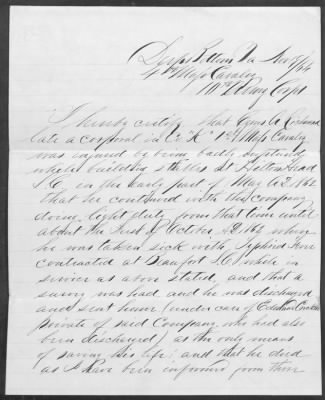 Jerusalem Va Nov 7/64
4th Mass Cavalry
Army Corps
I hereby certify that Cyrus A
late a corporal in Co "K" 1st Mass Cavalry
was injured by being badly
while building stables at Hilton Head
S.C. in the early part of May A.D. 1862
that he continued with the company
doing light duty from that time until
about the first of October A.D. 1862 when
he was taken sick with Typhoid fever
contracted at Beaufort S.C. while in
service as above stated, and that a
survey was had and he was discharged
and sent home (under care of
private of said Company who had also
been discharged) as the only means
of saving his life; and that he died
as I have been informed from there